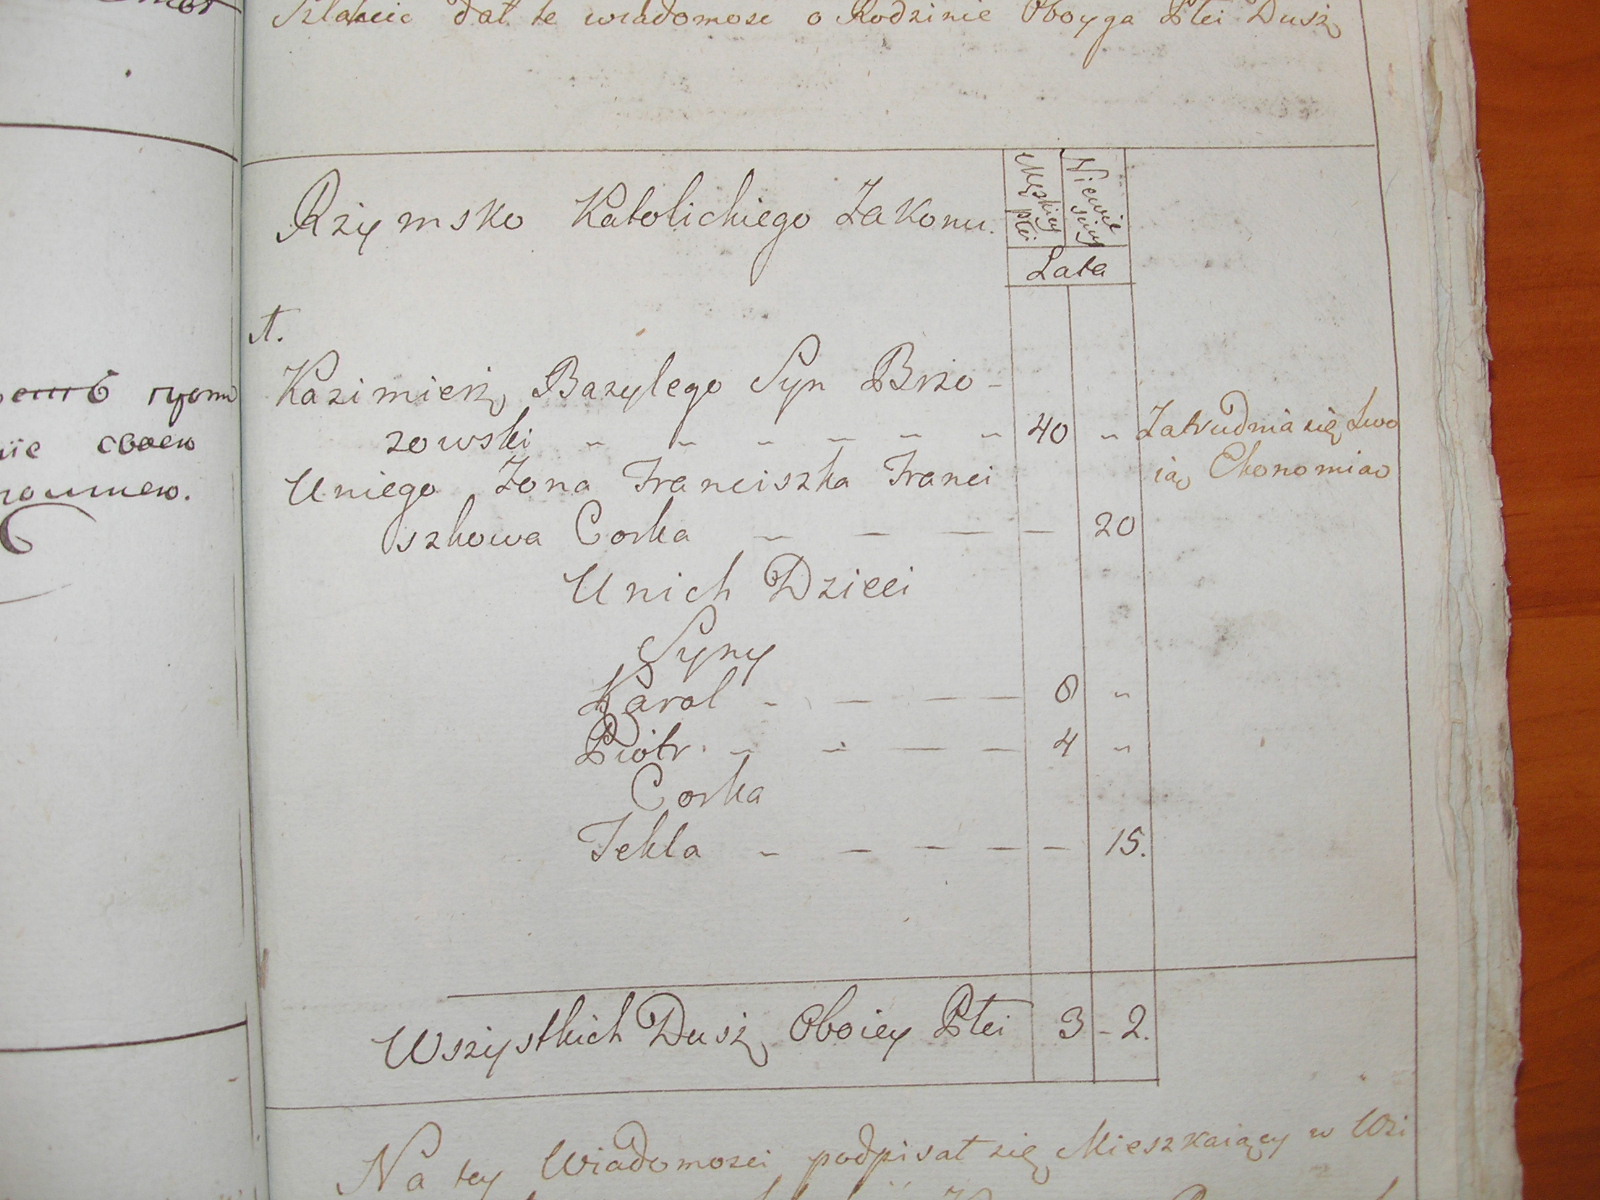 Szlachcic dał te wiadomosc o Rodzinie Oboyga Płci Dusz
Rzymsko Katolickiego Zakonu.
Męzkiey płci
Niewie sciey
Lata
1.
Kazimierz Bazylego Syn Brzo-
zowski - - - - - - 40 "
Zatrudnia się swo
ią Ekonomiao
Uniego Zona Franciszka Franci
szkowa Corka - - - - 20
Unich Dzieci
Syny
Karol - - - 8 "
Piotr - - - - 4 "
Corka
Tekla - - - - - 15.
Wszystkich Dusz Oboiey Płci 3 - 2.
Na tey Wiadomosci podpisał się Mieszkaiący w
етъ
їе своею